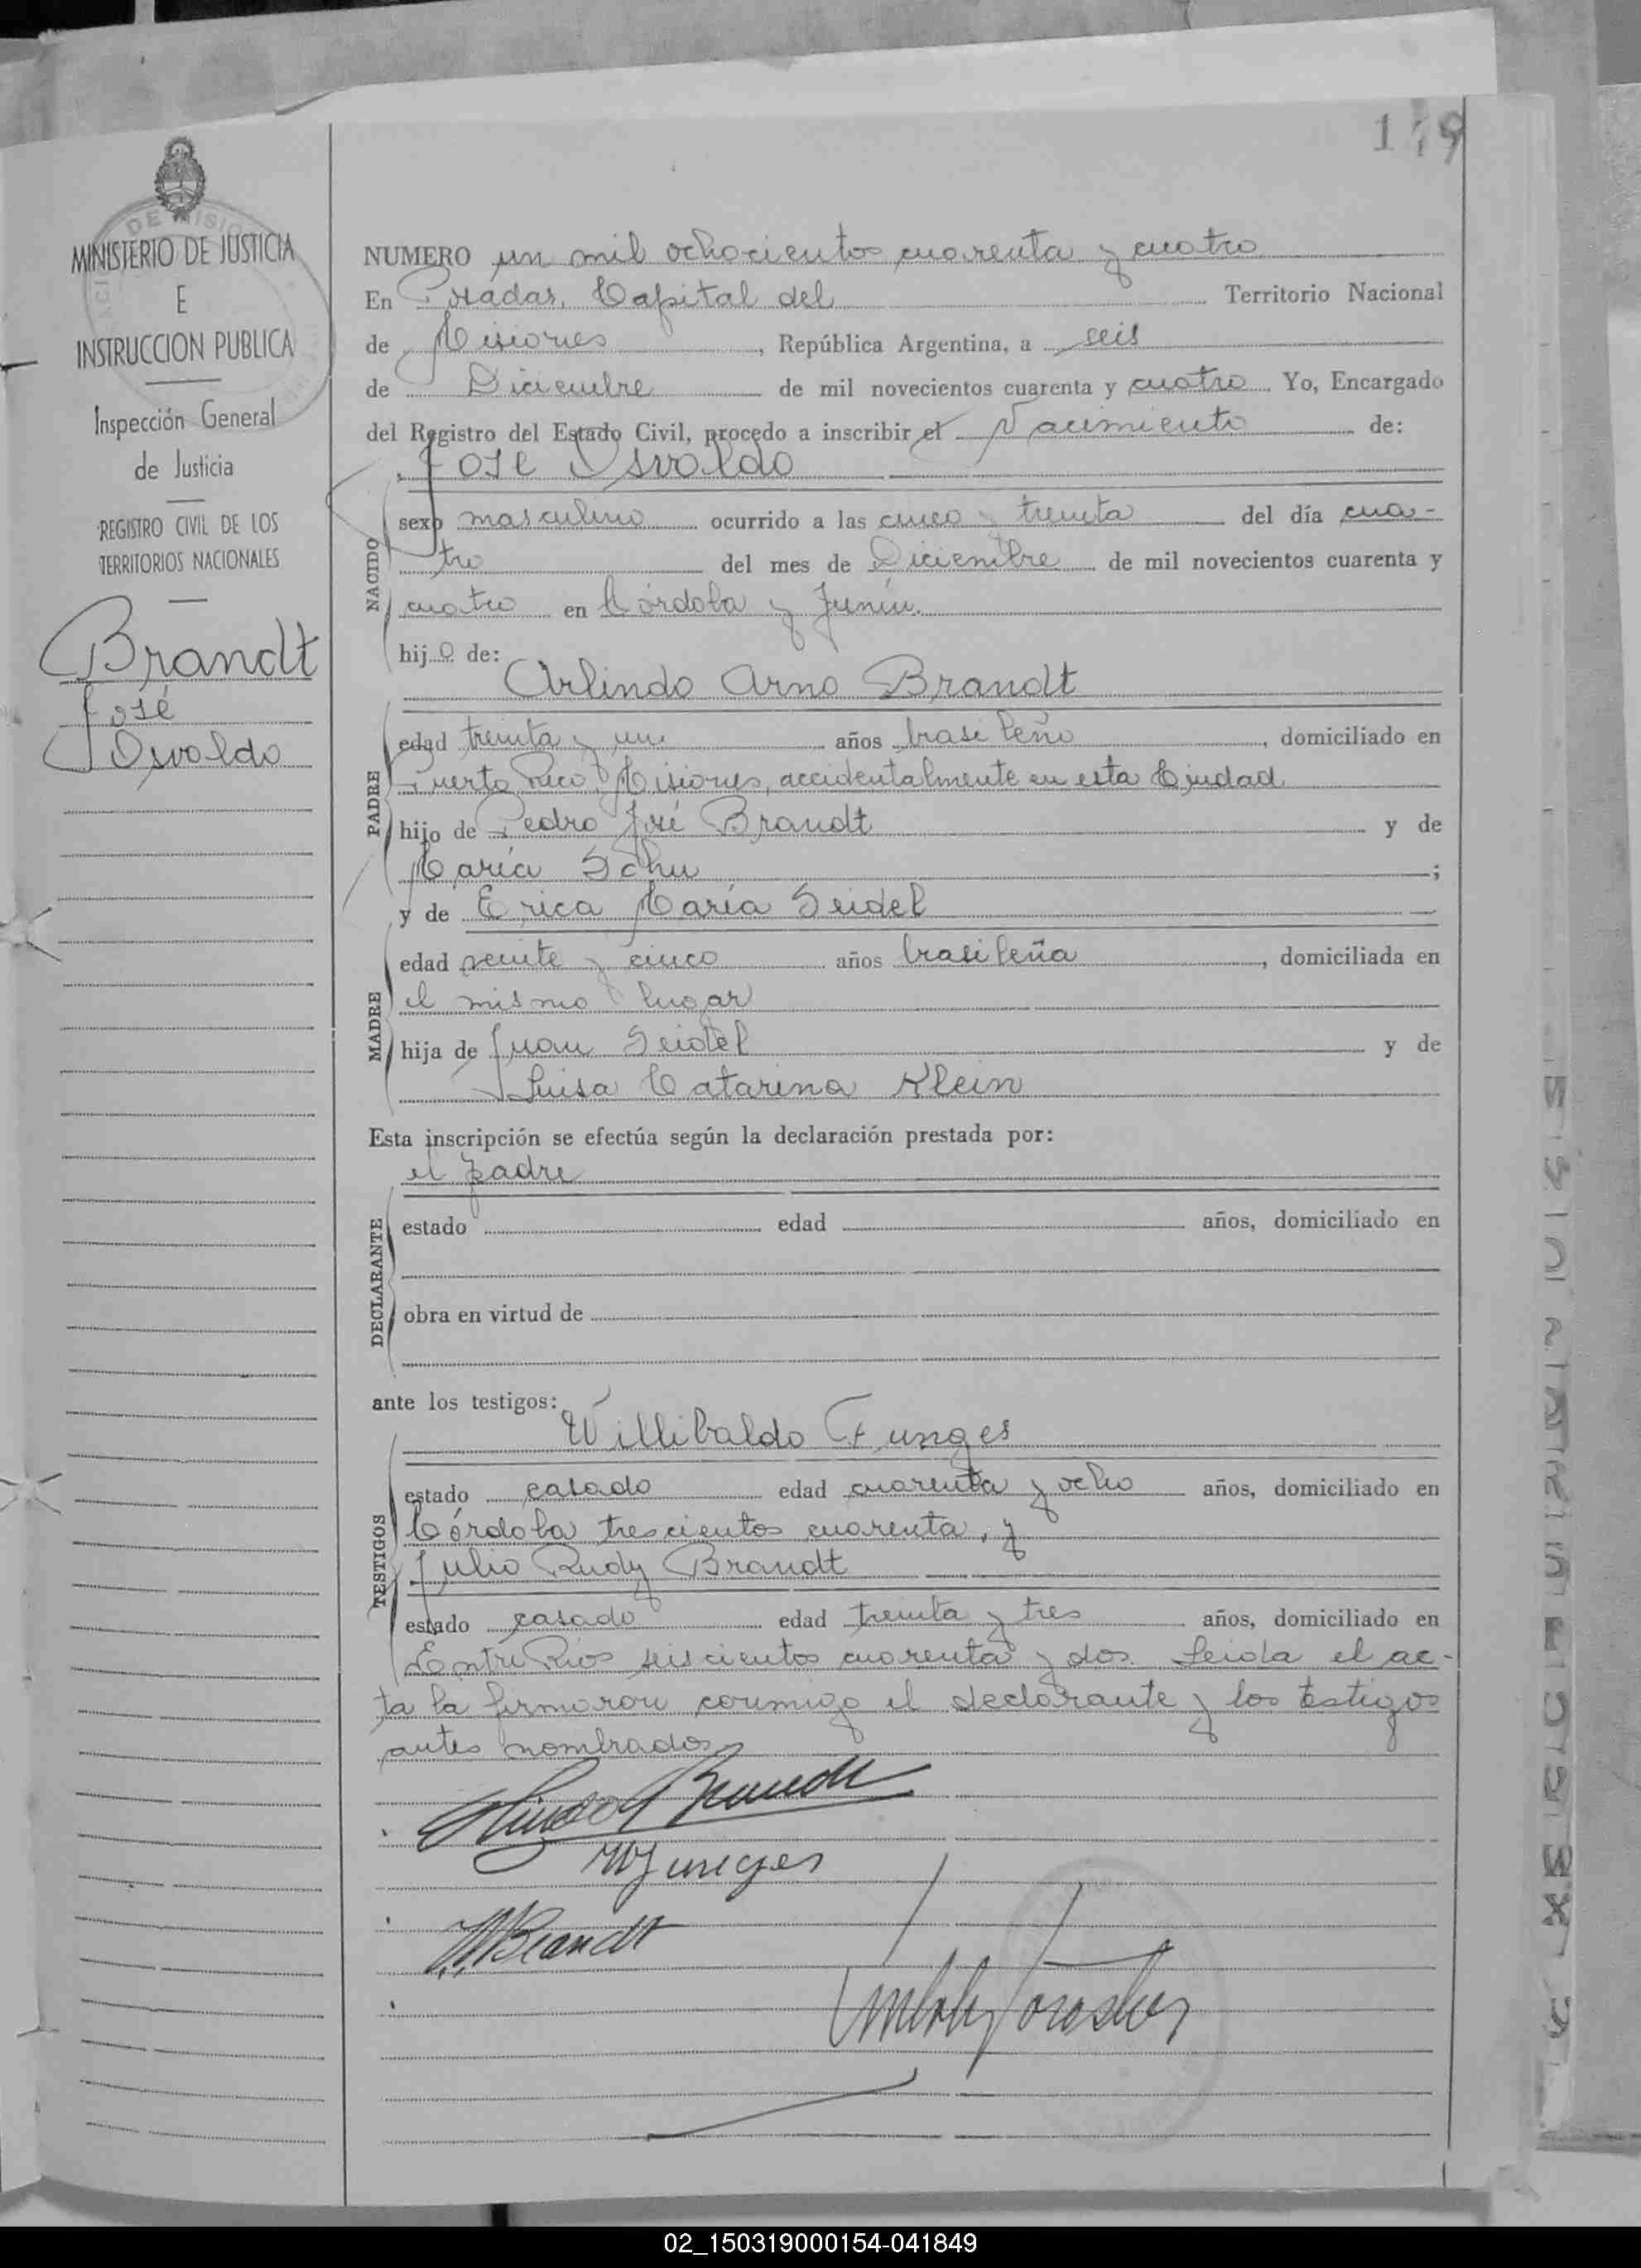 119
MINISTERIO DE JUSTICIA
E
INSTRUCCION PUBLICA
Inspección General
de Justicia
REGISTRO CIVIL DE LOS
TERRITORIOS NACIONALES
Brandt
José
Osvaldo
NUMERO un mil ochocientos cuarenta y cuatro
En Posadas, Capital del Territorio Nacional
de Misiones, República Argentina, a seis
de Diciembre de mil novecientos cuarenta y cuatro Yo, Encargado
del Registro del Estado Civil, procedo a inscribir el Nacimiento de:
José Osvaldo
NACIDO
sexo masculino ocurrido a las cinco y treinta del día cua-
tro del mes de Diciembre de mil novecientos cuarenta y
cuatro en Córdoba y Junín.
hijo de:
Arlindo Arno Brandt
PADRE
edad treinta y un años brasileño, domiciliado en
Puerto Rico, Misiones, accidentalmente en esta Ciudad
hijo de Pedro José Brandt y de
María Schu;
y de Erica María Seidel
MADRE
edad veinte y cinco años brasileña, domiciliada en
el mismo lugar
hija de Juan Seidel y de
Luisa Catarina Klein
Esta inscripción se efectúa según la declaración prestada por:
el padre
DECLARANTE
estado edad años, domiciliado en
obra en virtud de
ante los testigos:
Willibaldo Funges
TESTIGOS
estado casado edad cuarenta y ocho años, domiciliado en
Córdoba trescientos cuarenta, y
Julio Rudy Brandt
estado casado edad treinta y tres años, domiciliado en
Entre Rios seiscientos cuarenta y dos. Leida el ac-
ta la firmaron conmigo el declarante y los testigos
antes nombrados
Brandt
WJunges
Brandt
02_150319000154-041849